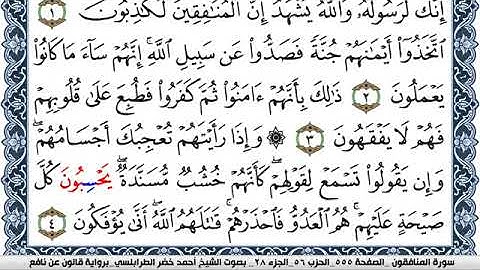 إِنَّكَ لَرَسُولُهُۥ وَاللَّهُ يَشْهَدُ إِنَّ الْمُنَٰفِقِينَ لَكَٰذِبُونَ ١
اَتَّخَذُوٓاْ أَيْمَٰنَهُمْ جُنَّةً فَصَدُّواْ عَن سَبِيلِ اللَّهِ إِنَّهُمْ سَآءَ مَا كَانُواْ
يَعْمَلُونَ ٢ ذَٰلِكَ بِأَنَّهُمْ ءَامَنُواْ ثُمَّ كَفَرُواْ فَطُبِعَ عَلَىٰ قُلُوبِهِمْ
فَهُمْ لَا يَفْقَهُونَ ٣ ۞ وَإِذَا رَأَيْتَهُمْ تُعْجِبُكَ أَجْسَامُهُمْ
وَإِن يَقُولُواْ تَسْمَعْ لِقَوْلِهِمْ كَأَنَّهُمْ خُشُبٌ مُّسَنَّدَةٌ يَحْسِبُونَ كُلَّ
صَيْحَةٍ عَلَيْهِمْ هُمُ الْعَدُوُّ فَاحْذَرْهُمْ قَٰتَلَهُمُ اللَّهُ أَنَّىٰ يُؤْفَكُونَ ٤
سورة المنافقون _ الصفحة ٥٥٥_الحزب ٥٦_الجزء ٢٨_ بصوت الشيخ أحمد خضر الطرابلسي _برواية قالون عن نافع